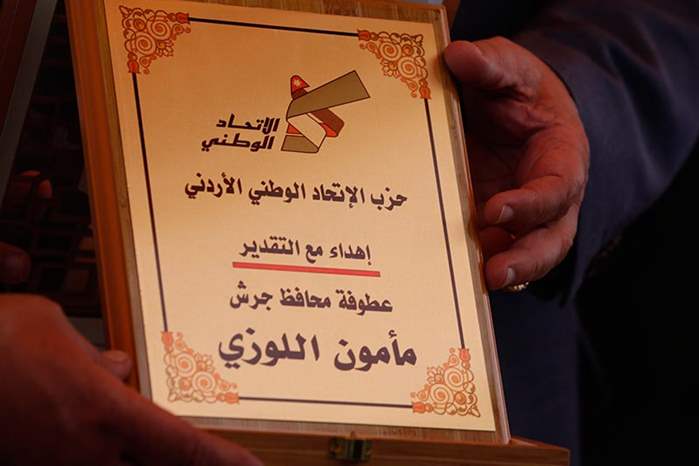 الاتحاد
الوطني
حزب الإتحاد الوطني الأردني
إهداء مع التقدير
عطوفة محافظ جرش
مأمون اللوزي